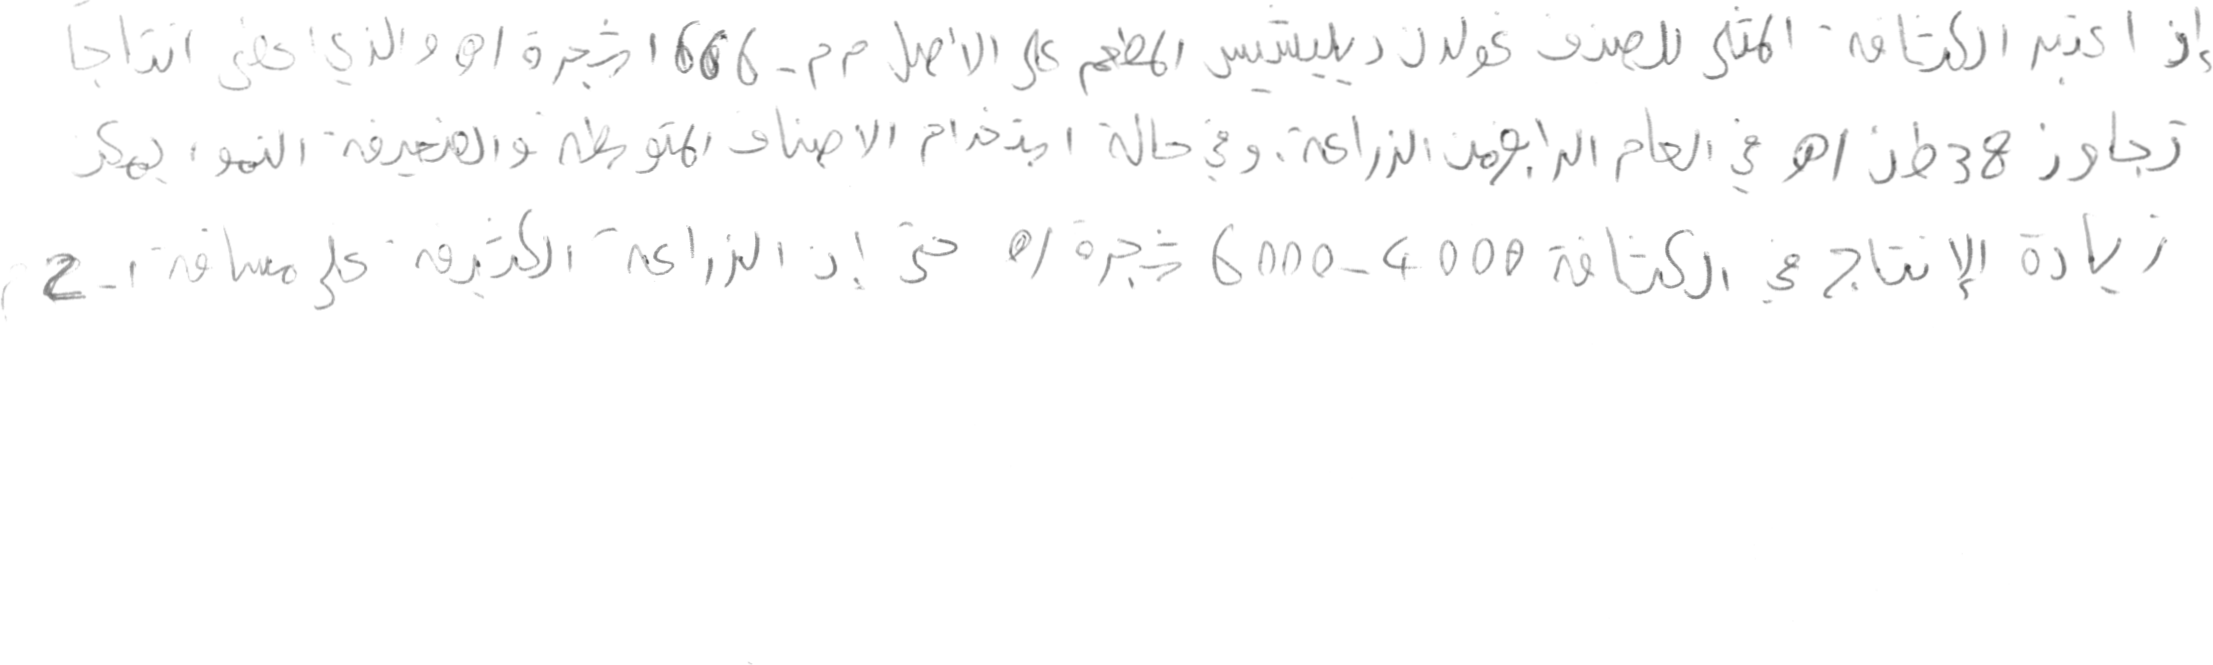 إذ اعتبر الكثافة المثلى للصنف غولدن ديليشيس المطعم على الأصل م م_1666 شجرة/ه والذي اعطى انتاجاً
تجاوز 38 طن/ه في العام الرابع من الزراعة، وفي حالة استخدام الاصناف المتوسطة والضعيفة النمو، يمكن
زيادة الإنتاج في الكثافة 4000_6000 شجرة/ه حتى إن الزراعة الكثيفة على مسافة 1_2 م